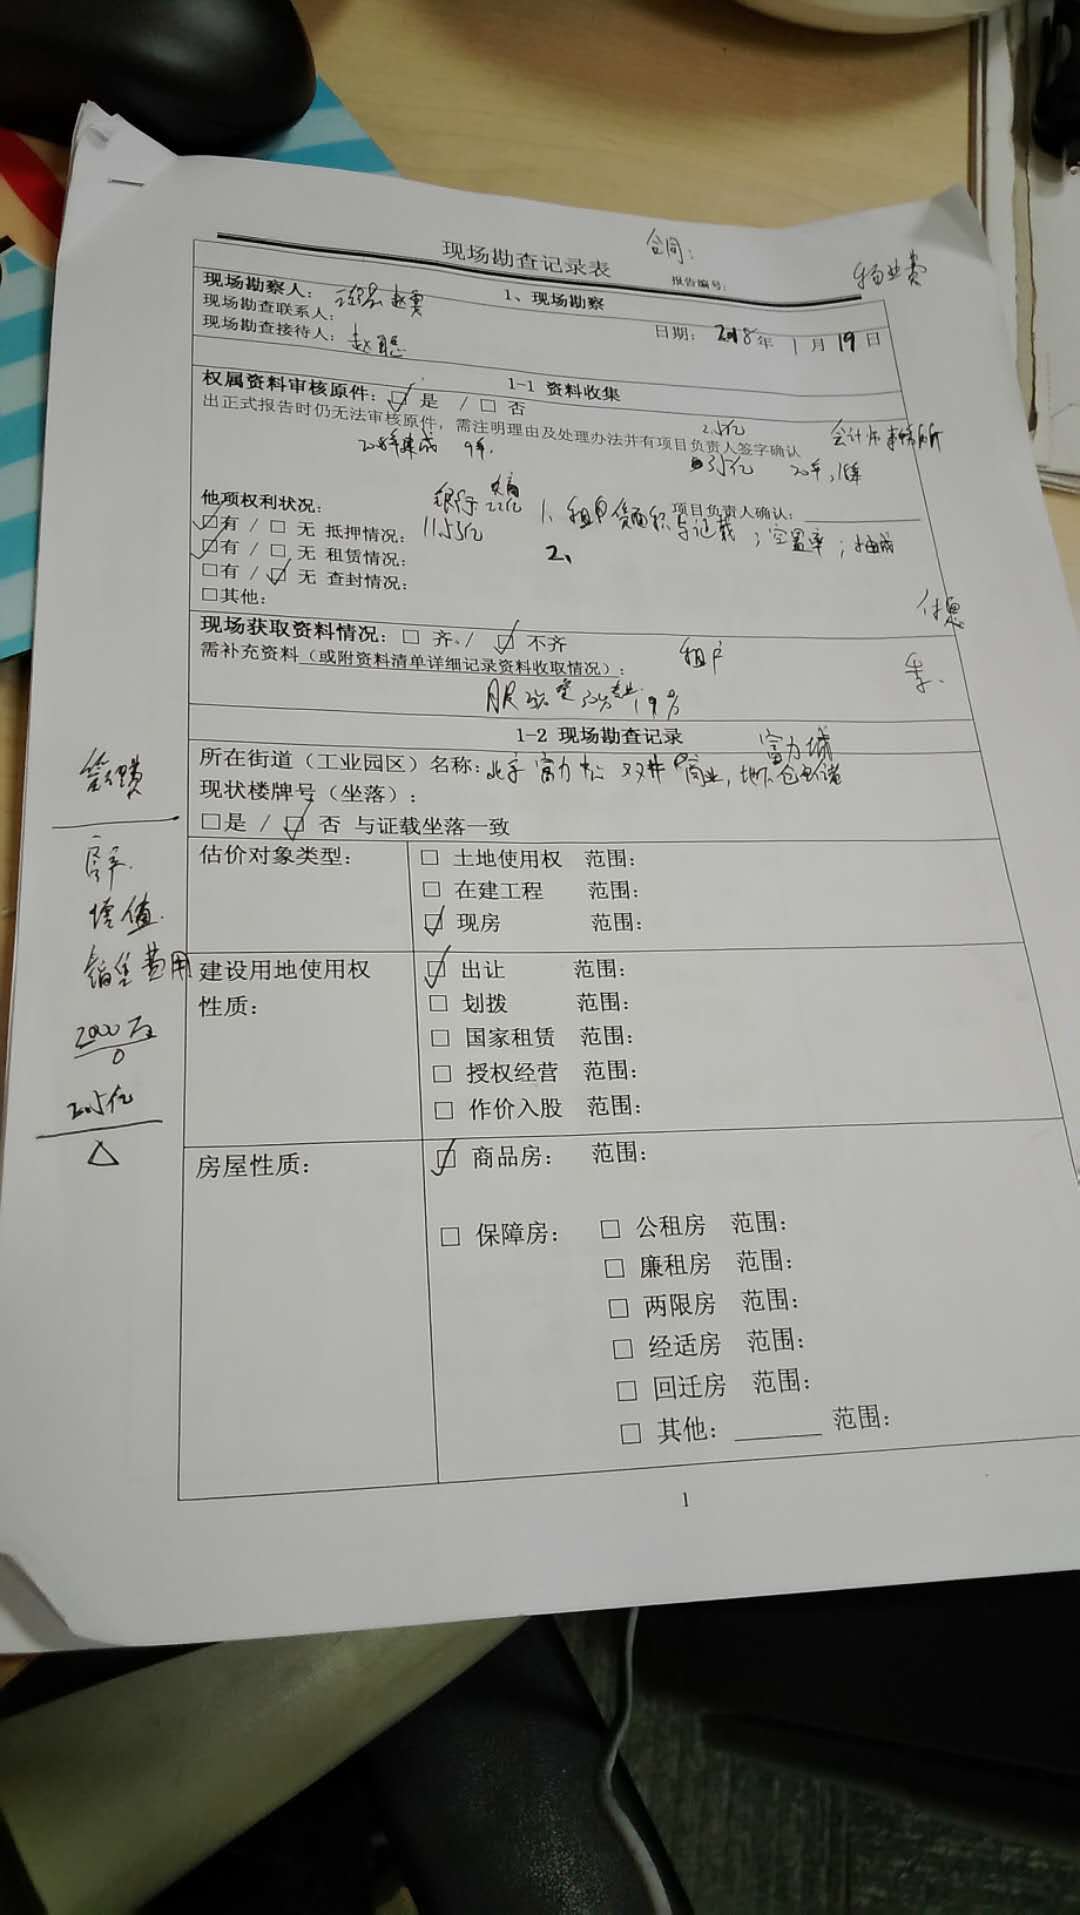 合同：
现场勘查记录表
报告编号：
物业费
1、现场勘察
现场勘察人： 赵勇
现场勘查联系人：
日期： 2018年 1月 19日
现场勘查接待人： 赵
1-1 资料收集
权属资料审核原件：☑ 是 / □ 否
出正式报告时仍无法审核原件，需注明理由及处理办法并有项目负责人签字确认
2.5亿
会计师事务所
建成 9年.
3.5亿 20年,
他项权利状况：
项目负责人确认：
银行 22亿
☑有 / □ 无 抵押情况： 11.55亿
1、租 面积与记载；空置率；
□有 / □ 无 租赁情况：
2、
□有 / ☑ 无 查封情况：
□其他：
现场获取资料情况：□ 齐、/ ☑ 不齐
需补充资料（或附资料清单详细记录资料收取情况）：
租户
季.
1-2 现场勘查记录
所在街道（工业园区）名称：北京富力中心 双井 商业，地下仓储
富力城
现状楼牌号（坐落）：
□是 / ☑ 否 与证载坐落一致
管理费
房产.
增值.
销售费用
2000万
0
2.5亿
△
估价对象类型：
□ 土地使用权 范围：
□ 在建工程 范围：
☑ 现房 范围：
建设用地使用权性质：
☑ 出让 范围：
□ 划拨 范围：
□ 国家租赁 范围：
□ 授权经营 范围：
□ 作价入股 范围：
房屋性质：
☑ 商品房： 范围：
□ 保障房： □ 公租房 范围：
□ 廉租房 范围：
□ 两限房 范围：
□ 经适房 范围：
□ 回迁房 范围：
□ 其他：______ 范围：
1